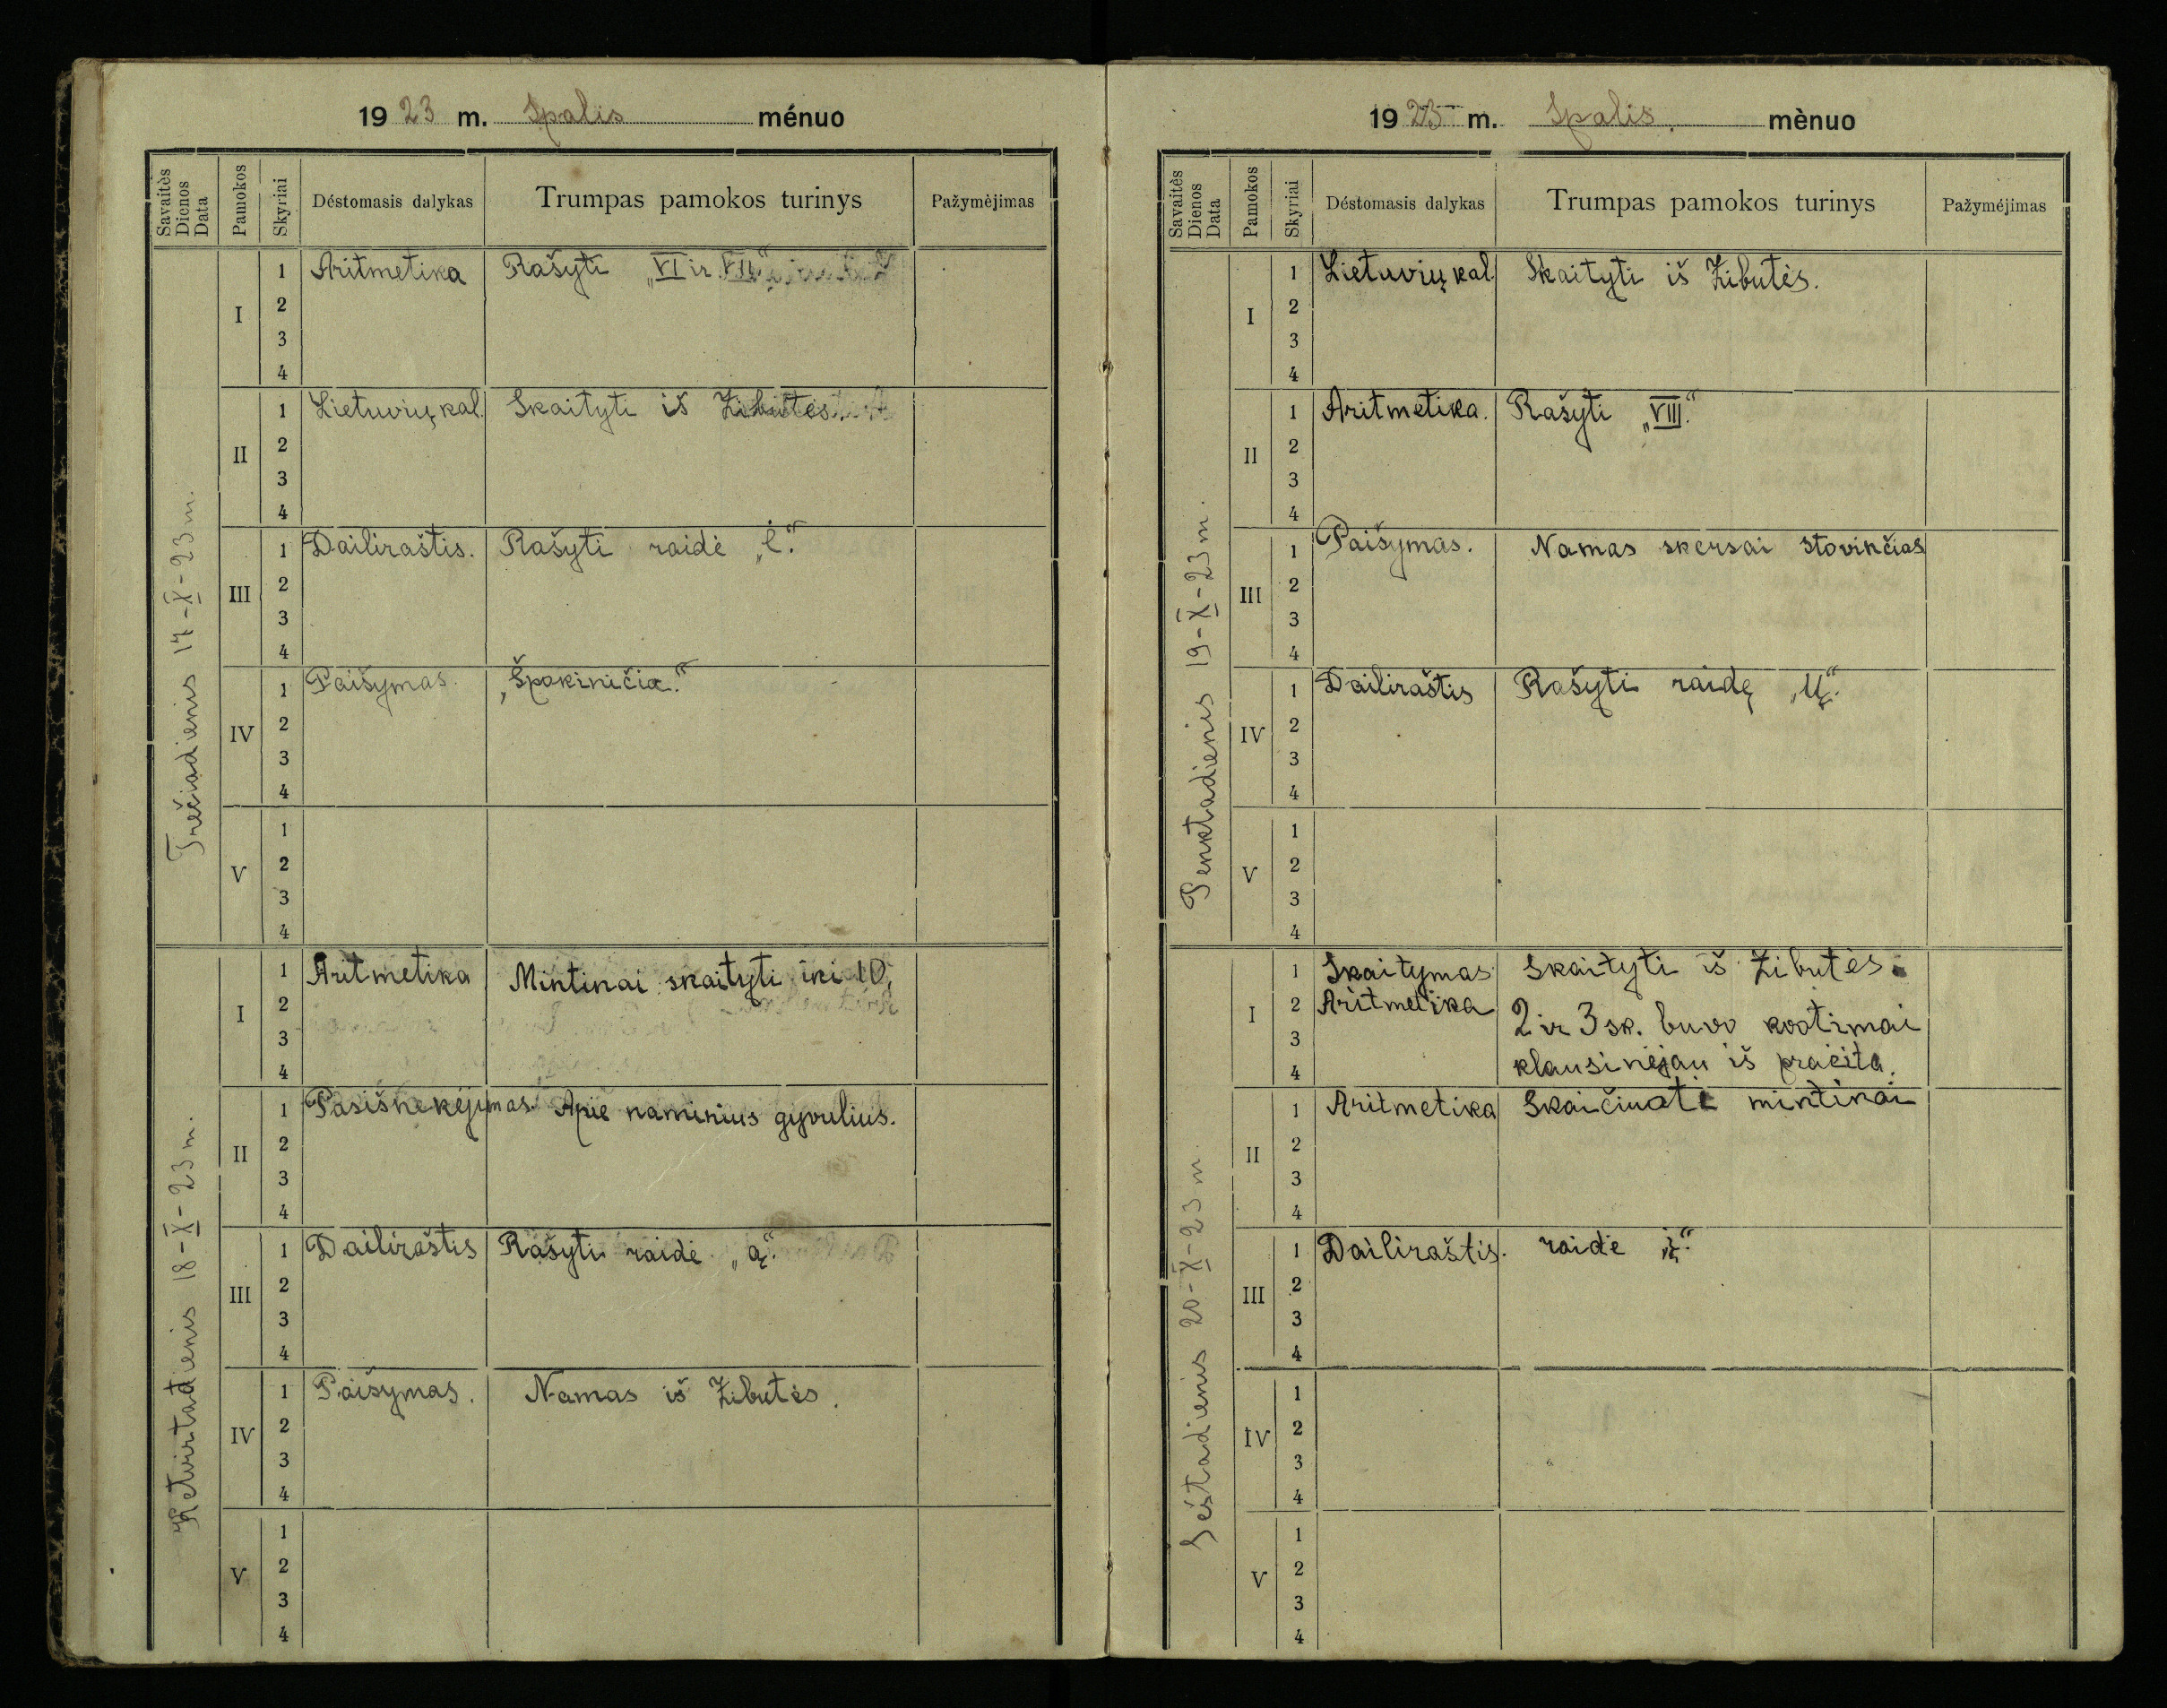 1923 m. Spalis ménuo
Savaitės Dienos Data
Pamokos
Skyriai
Déstomasis dalykas
Trumpas pamokos turinys
Pažymėjimas
Trečiadienis 17-X-23 m.
I
1 Aritmetika Rašyti „VI ir VII“
2
3
4
II
1 Lietuvių kal. Skaityti iš Žibutės.
2
3
4
III
1 Dailiraštis. Rašyti raidė „ė“.
2
3
4
IV
1 Paišymas. „Špokiničia.“
2
3
4
V
1
2
3
4
Ketvirtadienis 18-X-23 m.
I
1 Aritmetika Mintinai skaityti iki 10,
2
3
4
II
1 Pasišnekėjimas. Apie naminius gyvulius.
2
3
4
III
1 Dailiraštis Rašyti raidė „ą“.
2
3
4
IV
1 Paišymas. Namas iš Žibutės.
2
3
4
V
1
2
3
4
1923 m. Spalis. mènuo
Savaitès Dienos Data
Pamokos
Skyriai
Déstomasis dalykas
Trumpas pamokos turinys
Pažyméjimas
Penktadienis 19-X-23 m.
I
1 Lietuvių kal. Skaityti iš Žibutės.
2
3
4
II
1 Aritmetika. Rašyti „VIII“.
2
3
4
III
1 Paišymas. Namas skersai stovinčias
2
3
4
IV
1 Dailiraštis Rašyti raidę „Ų“.
2
3
4
V
1
2
3
4
Šeštadienis 20-X-23 m.
I
1 Skaitymas Skaityti iš Žibutės.
2 Aritmetika 2 ir 3 sk. buvo kartimai
3
4 klausinėjau iš praeita.
II
1 Aritmetika Skaičiuoti mintinai
2
3
4
III
1 Dailiraštis. raidė „į“.
2
3
4
IV
1
2
3
4
V
1
2
3
4